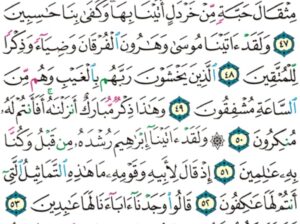 مِثْقَالَ حَبَّةٍ مِّنْ خَرْدَلٍ أَتَيْنَا بِهَا وَكَفَىٰ بِنَا حَاسِبِينَ
٤٧ وَلَقَدْ ءَاتَيْنَا مُوسَىٰ وَهَـٰرُونَ ٱلْفُرْقَانَ وَضِيَآءً وَذِكْرًا
لِّلْمُتَّقِينَ ٤٨ ٱلَّذِينَ يَخْشَوْنَ رَبَّهُم بِٱلْغَيْبِ وَهُم مِّنَ
ٱلسَّاعَةِ مُشْفِقُونَ ٤٩ وَهَـٰذَا ذِكْرٌ مُّبَارَكٌ أَنزَلْنَـٰهُ أَفَأَنتُمْ لَهُۥ
مُنكِرُونَ ٥٠ ۞ وَلَقَدْ ءَاتَيْنَآ إِبْرَٰهِيمَ رُشْدَهُۥ مِن قَبْلُ وَكُنَّا
بِهِۦ عَـٰلِمِينَ ٥١ إِذْ قَالَ لِأَبِيهِ وَقَوْمِهِۦ مَا هَـٰذِهِ ٱلتَّمَاثِيلُ ٱلَّتِىٓ
أَنتُمْ لَهَا عَـٰكِفُونَ ٥٢ قَالُوا۟ وَجَدْنَآ ءَابَآءَنَا لَهَا عَـٰبِدِينَ ٥٣